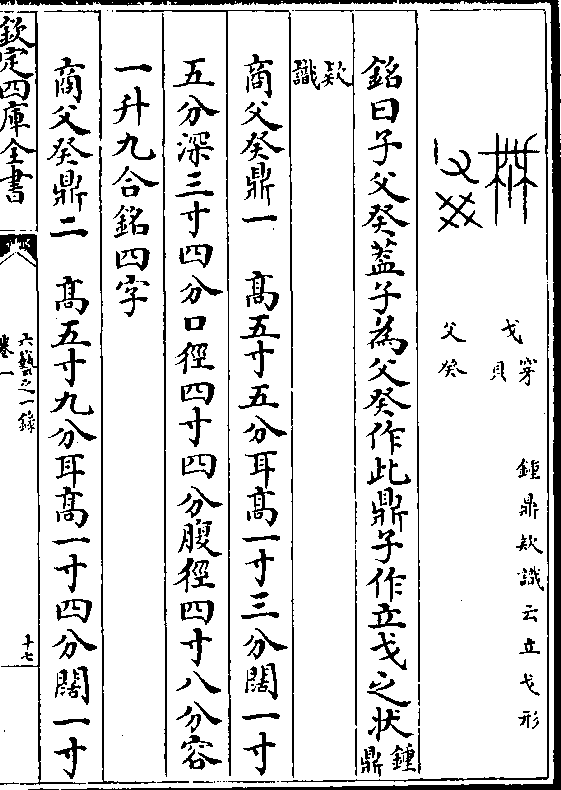 戈 穿貝 鍾鼎欵識云立戈形
父癸
銘曰子父癸蓋子為父癸作此鼎子作立戈之状鍾鼎
欵識
商父癸鼎一 高五寸五分耳高一寸三分闊一寸
五分深三寸四分口徑四寸四分腹徑四寸八分容
一升九合銘四字
商父癸鼎二 高五寸九分耳高一寸四分闊一寸
欽定四庫全書
六藝之一録
卷一
十七